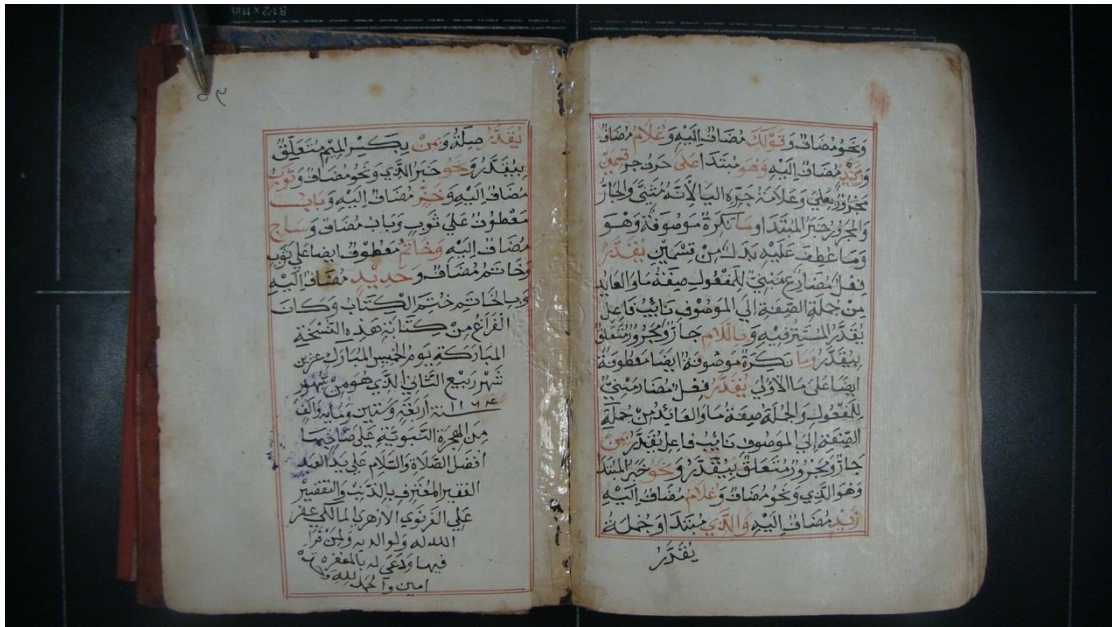 ونحو مضاف وقولك مضاف إليه وغلام مضاف
وزيد مضاف إليه وهو مبتدا على حرف جر قسمين
مجرور بعلى وعلامة جره اليا لانه مثنى والجار
والمجرور خبر المبتدا وما نكرة موصوفة وهو
وما عطف عليه بدل من قسمين يقدر
فعل مضارع مبني للمفعول صفة ما والعايد
من جملة الصفة إلى الموصوف نائب فاعل
يقدر المستتر فيه وباللام جار ومجرور متعلق
بيقدر وما نكرة موصوفة ايضا معطوفة
ايضا على ما الأولى يقدر فعل مضارع مبني
للمفعول والجملة صفة ما والعائد من جملة
الصفة إلى الموصوف نائب فاعل يقدر بمن
جار ومجرور متعلق بيقدر ونحو خبر المبتدا
وهو الذي ونحو مضاف وغلام مضاف إليه
زيد مضاف إليه والذي مبتدا وجملة
يقدر
يقدر صلة ومن بكسر الميم متعلق
بيقدر ونحو خبر الذي ونحو مضاف وثوب
مضاف إليه وخز مضاف إليه وباب
معطوف على ثوب وباب مضاف وساج
مضاف إليه وخاتم معطوف ايضا على ثوب
وخاتم مضاف وحديد مضاف إليه
وبالخاتم ختم الكتاب وكان
الفراغ من كتابة هذه النسخة
المباركة يوم الخميس المبارك
شهر ربيع الثاني الذي هو من شهور
١١٦٤ سنة أربعة وستين وماية والف
من الهجرة النبوية على صاحبها
أفضل الصلاة والسلام على يد العبد
الفقير المعترف بالذنب والتقصير
على الازهري المالكي غفر
الله له ولوالديه ولمن قرا
فيها ودعى له بالمغفرة
امين والحمد لله